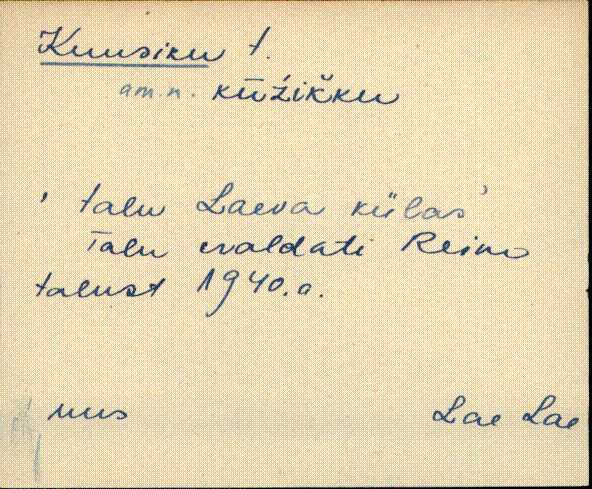 Kuusiku t.
am.n. kūźikku
' talu Laeva külas'
Talu eraldati Reino
talust 1940.a.
uus
Lae Lae